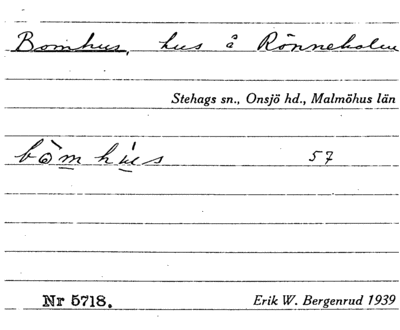 Bomhus, hus å Rönneholm
Stehags sn., Onsjö hd., Malmöhus län
bòm hús 57
Nr 5718. Erik W. Bergenrud 1939